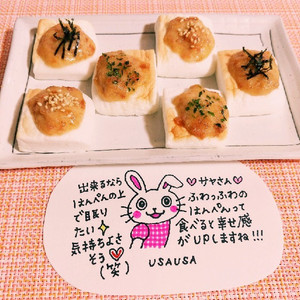 出来るなら
はんぺんの上
で眠り
たい
気持ちよさ
そう
(笑)
サヤさん
ふわっふわの
はんぺんって
食べると幸せ感
がUPしますね!!!
USAUSA